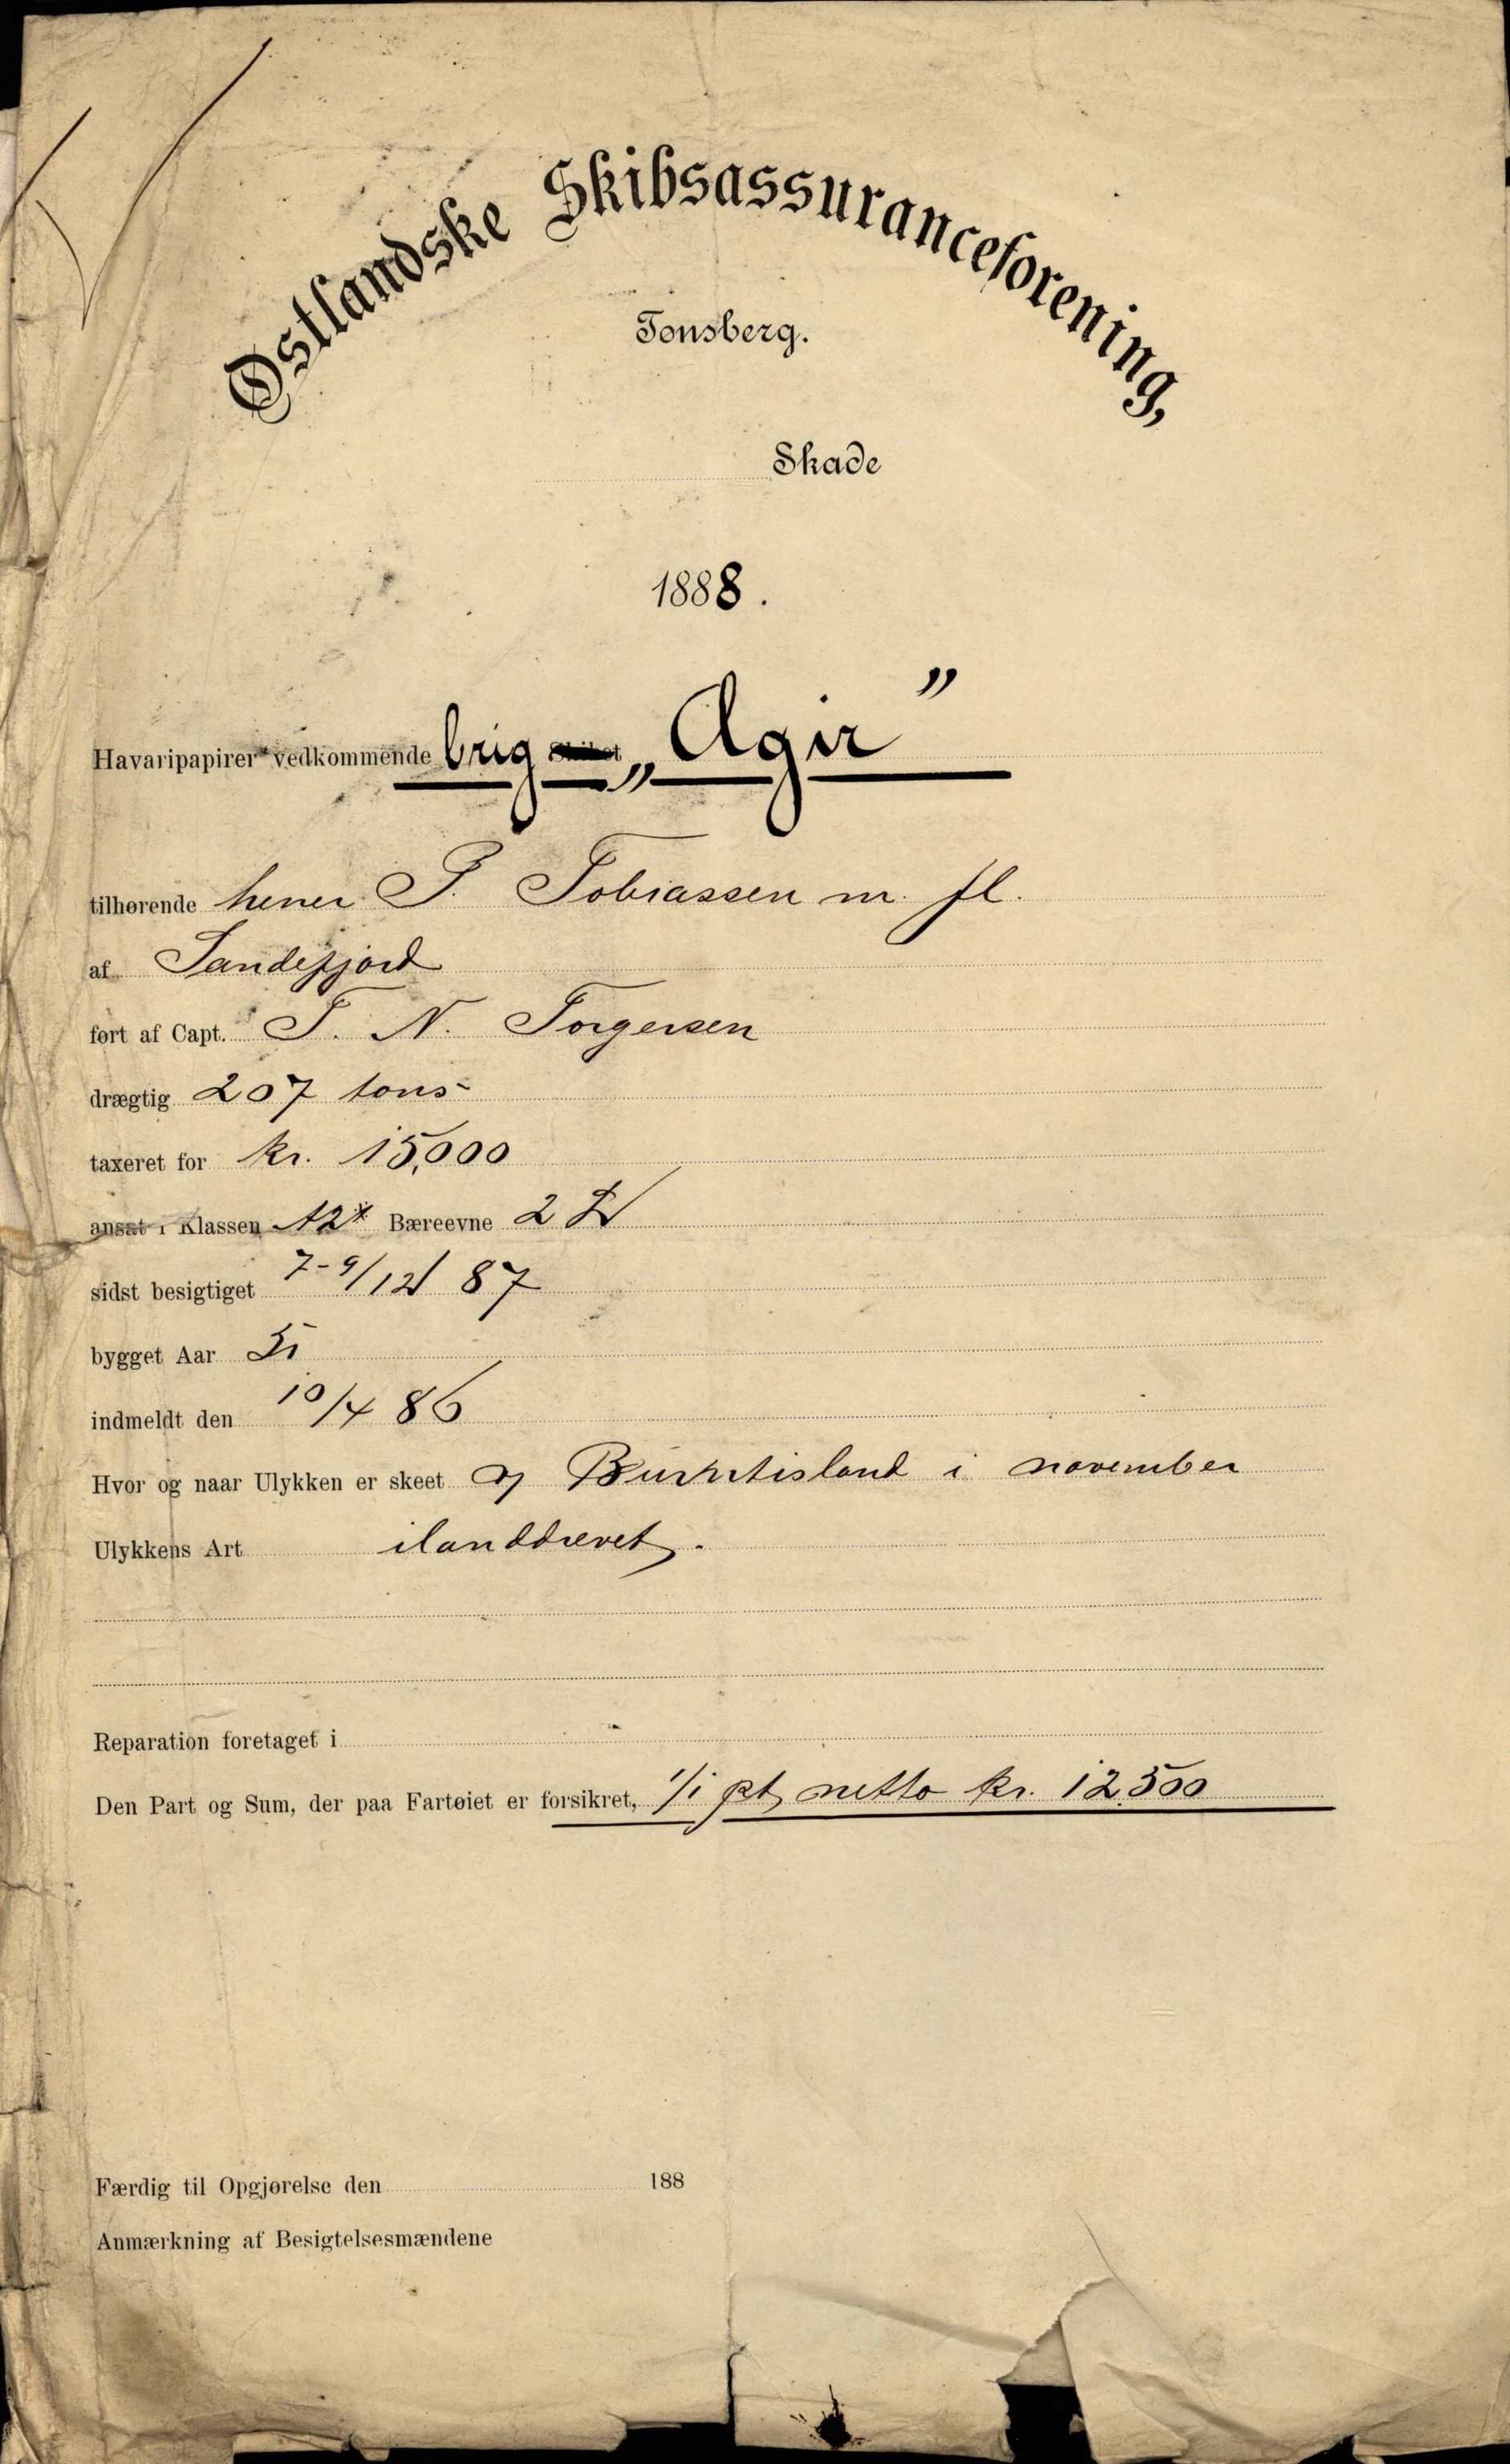 Østlandske Skibsassuranceforening,
Tønsberg.
Skade
1888.
Havaripapirer vedkommende brig Skibet „Ægir”
tilhørende herrer P. Tobiassen m. fl.
af Sandefjord
ført af Capt. T. N. Torgersen
drægtig 207 tons
taxeret for kr. 15,000
ansat i Klassen A2* Bæreevne 2
sidst besigtiget 7-9/12 87
bygget Aar 51
indmeldt den 10/4 86
Hvor og naar Ulykken er skeet Burntisland i november
Ulykkens Art ilanddrevet.
Reparation foretaget i
Den Part og Sum, der paa Fartøiet er forsikret, 1/1 pt netto kr. 12500
Færdig til Opgjørelse den 188
Anmærkning af Besigtelsesmændene